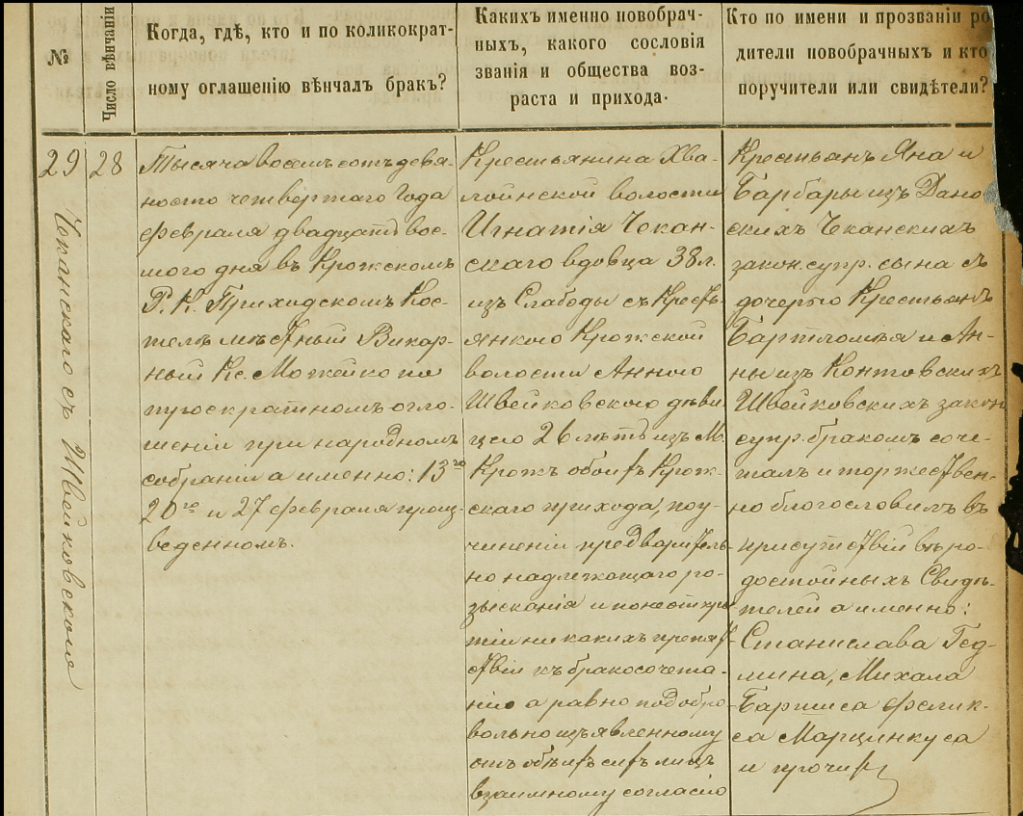 №
Число вѣнчанія
Когда, гдѣ, кто и по коликократ-
ному оглашенію вѣнчалъ бракъ?
Какихъ именно новобрач-
ныхъ, какого сословія
званія и общества воз-
раста и прихода.
Кто по имени и прозванію ро
дители новобрачныхъ и кто
поручители или свидѣтели?
29
28
Чеканскаго съ Швейковскою
Тысяча восемьсотъ девя-
носто четвертаго Года
февраля двадцать вос-
мого дня въ Крожскомъ
Р. К. Приходскомъ Кос-
телѣ мѣстный Викар-
ный Кс. Можейко по
троекратномъ огла-
шеніи при народномъ
собраніи а именно: 13го
20го и 27 февраля произ-
веденномъ.
Крестьянина Хва-
лойнской волости
Игнатія Чекан-
скаго вдовца 38 л.
изъ Слабоды съ Кресть-
янкою Крожской
волости Анною
Швейковскою дѣви
цею 26 лѣтъ изъ М.
Крожъ обоихъ Крож-
скаго прихода, по у-
чиненіи предваритель-
но надлежащаго ро-
зысканія и по неоткры
тіи ни какихъ препят-
ствій къ бракосочета-
нію а равно по добро-
вольно изъявленному
отъ обѣихъ сихъ лицъ
взаимному согласію
Крестьянъ Яна и
Барбары изъ
скихъ Чеканскихъ
закон. супр. сына съ
дочерью Крестьянъ
Бартломѣя и Ан-
ны изъ Контовскихъ
Швейковскихъ закон
супр. бракомъ соче-
талъ и торжествен-
но благословилъ въ
присутствіи вѣро-
достойныхъ Свидѣ-
телей а именно:
Станислава Гед-
мина, Михала
феликса
Марцинкуса
и прочихъ